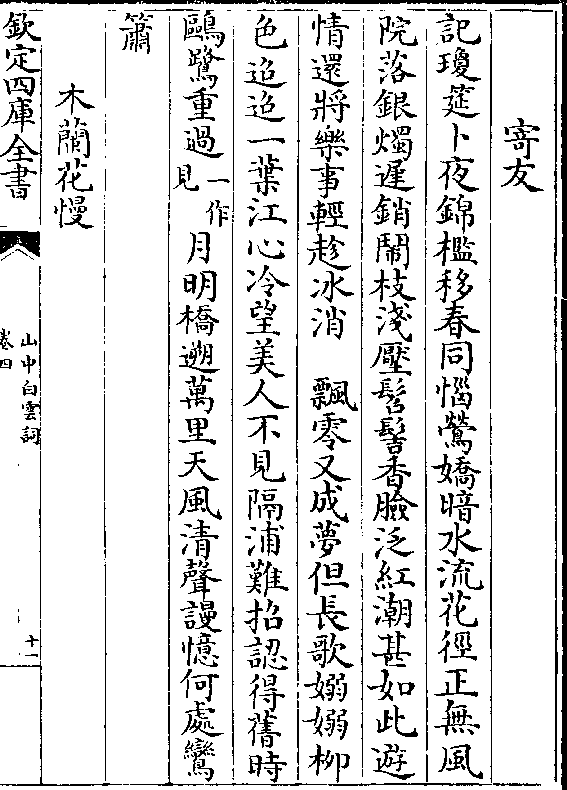 寄友
記瓊筵卜夜錦檻移春同惱鶯嬌暗水流花徑正無風
院落銀燭遲銷鬧枝淺壓髻𩭝香臉泛紅潮甚如此遊
情還將樂事輕趁冰消　飄零又成夢但長歌嫋嫋柳
色迢迢一葉江心冷望美人不見隔浦難招認得舊時
鷗鷺重過一作見月明橋遡萬里天風清聲謾憶何處鸞
簫
木蘭花慢
欽定四庫全書
山中白雲詞
卷四
十一